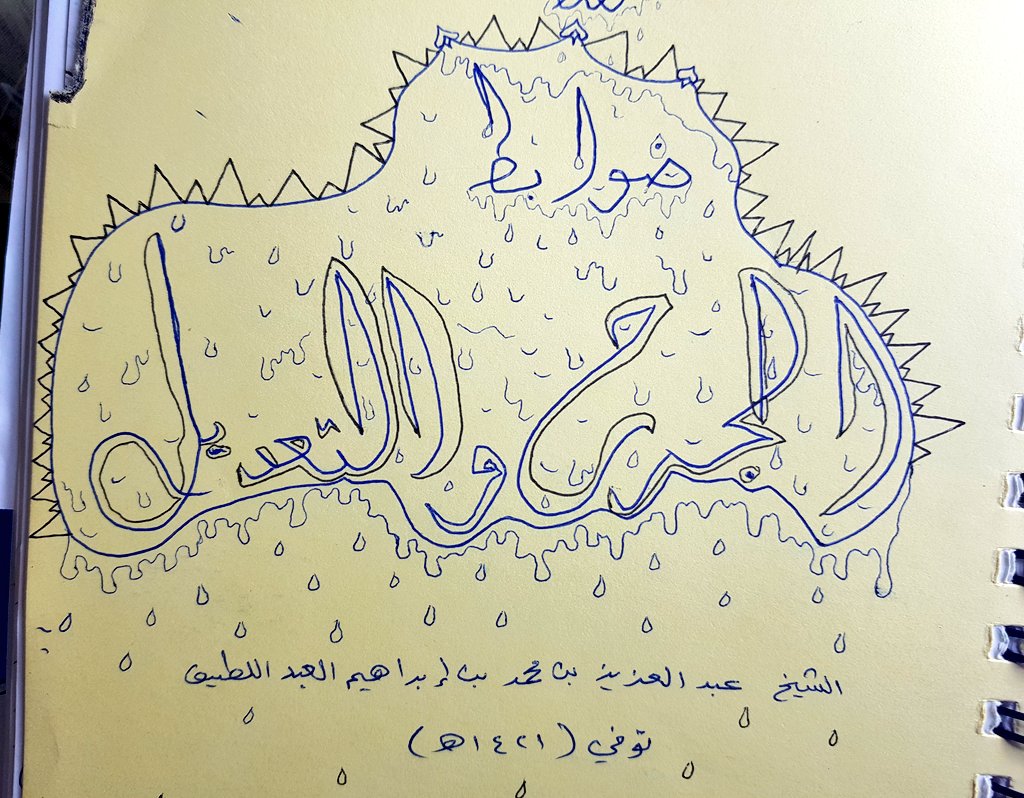 ضوابط
الجرح والتعديل
الشيخ عبد العزيز بن محمد بن إبراهيم العبد اللطيف
توفي (١٤٢١هـ)